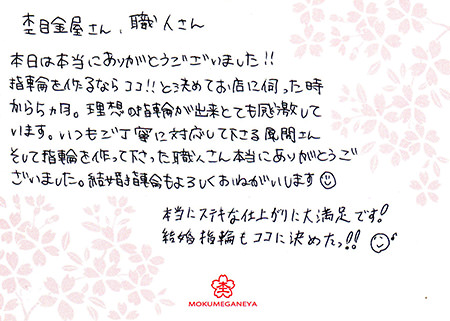 杢目金屋さん、職人さん
本日は本当にありがとうございました!!
指輪を作るならココ!!と決めてお店に伺った時
から5ヵ月。理想の指輪が出来とても感激して
います。いつもご丁寧に対応して下さる風間さん
そして指輪を作って下さった職人さん本当にありがとうご
ざいました。結婚指輪もよろしくおねがいします☺
本当にステキな仕上がりに大満足です!
結婚指輪もココに決めたっ!!☺♪
杢
MOKUMEGANEYA